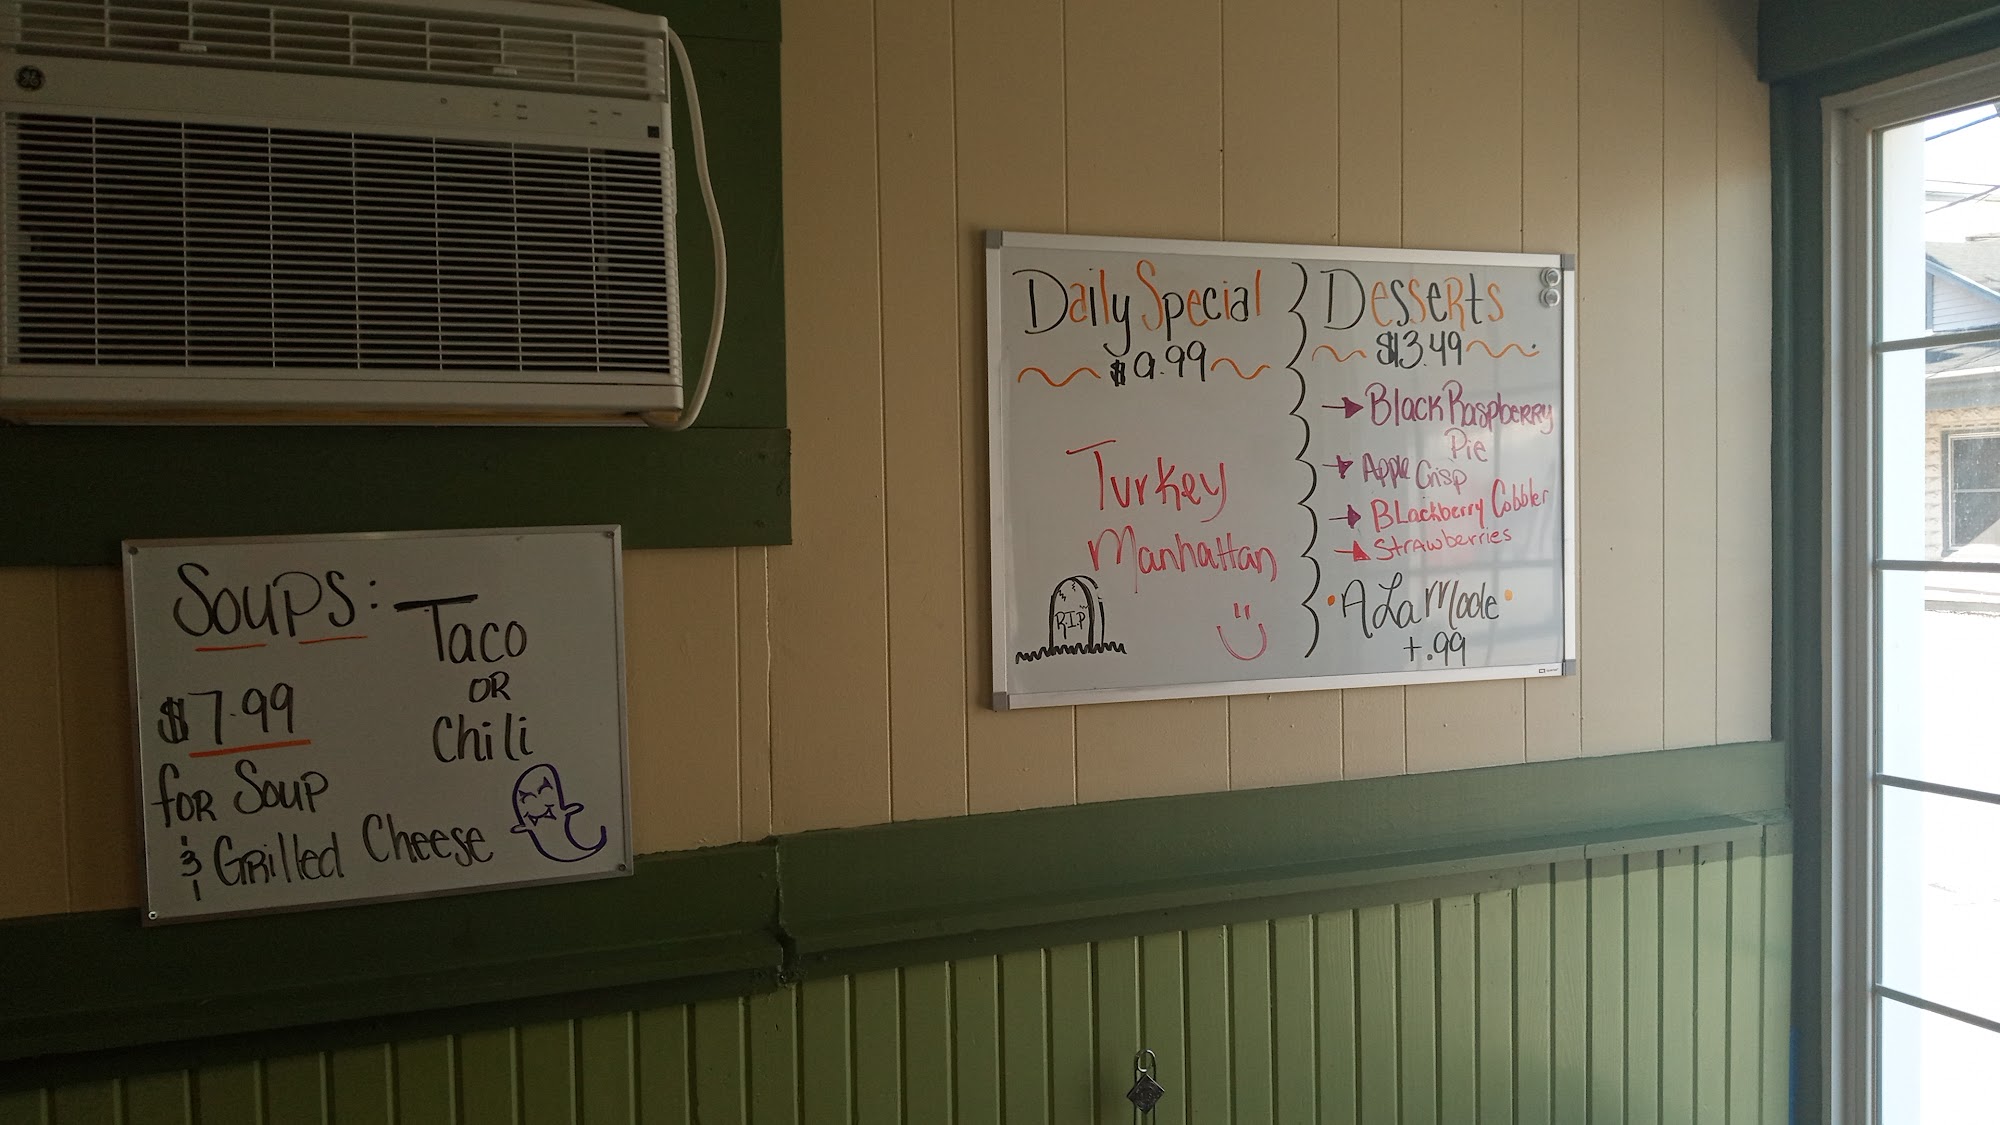 Soups:
Taco
OR
Chili
$7.99
for Soup
& Grilled Cheese
Daily Special
$9.99
Turkey
Manhattan
R.I.P
Desserts
$3.49
Black Raspberry
Pie
Apple Crisp
Blackberry Cobbler
Strawberries
A La Mode
+.99